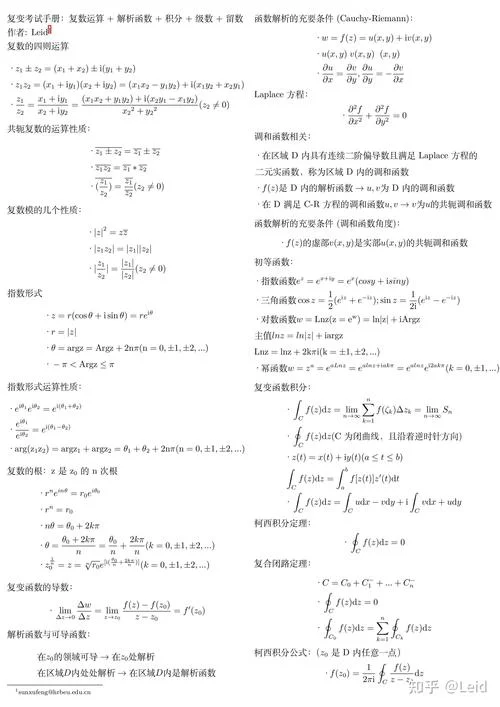 复变考试手册：复数运算 + 解析函数 + 积分 + 级数 + 留数
作者: Leid¹
复数的四则运算
· z₁ ± z₂ = (x₁ + x₂) ± i(y₁ + y₂)
· z₁z₂ = (x₁ + iy₁)(x₂ + iy₂) = (x₁x₂ − y₁y₂) + i(x₁y₂ + x₂y₁)
· z₁/z₂ = (x₁ + iy₁)/(x₂ + iy₂) = ((x₁x₂ + y₁y₂) + i(x₂y₁ − x₁y₂))/(x₂² + y₂²) (z₂ ≠ 0)
共轭复数的运算性质：
· \overline{z₁ ± z₂} = \overline{z₁} ± \overline{z₂}
· \overline{z₁z₂} = \overline{z₁} * \overline{z₂}
· \overline{(z₁/z₂)} = \overline{z₁}/\overline{z₂} (z₂ ≠ 0)
复数模的几个性质：
· |z|² = z\overline{z}
· |z₁z₂| = |z₁||z₂|
· |z₁/z₂| = |z₁|/|z₂| (z₂ ≠ 0)
指数形式
· z = r(cos θ + i sin θ) = re^{iθ}
· r = |z|
· θ = argz = Argz + 2nπ(n = 0, ±1, ±2, ...)
· −π < Argz ≤ π
指数形式运算性质：
· e^{iθ₁}e^{iθ₂} = e^{i(θ₁+θ₂)}
· e^{iθ₁}/e^{iθ₂} = e^{i(θ₁−θ₂)}
· arg(z₁z₂) = argz₁ + argz₂ = θ₁ + θ₂ + 2nπ(n = 0, ±1, ±2, ...)
复数的根：z 是 z₀ 的 n 次根
· rⁿe^{inθ} = r₀e^{iθ₀}
· rⁿ = r₀
· nθ = θ₀ + 2kπ
· θ = (θ₀ + 2kπ)/n = θ₀/n + 2kπ/n (k = 0, ±1, ±2, ...)
· z₀^{1/n} = z = ⁿ√r₀e^{[i(θ₀/n + 2kπ/n)]}(k = 0, ±1, ±2, ...)
复变函数的导数：
· lim_{Δz→0} Δw/Δz = lim_{z→z₀} (f(z) − f(z₀))/(z − z₀) = f′(z₀)
解析函数与可导函数：
在z₀的领域可导 → 在z₀处解析
在区域D内处处解析 → 在区域D内是解析函数
¹sunxufeng@hrbeu.edu.cn
函数解析的充要条件 (Cauchy-Riemann)：
· w = f(z) = u(x, y) + iv(x, y)
· u(x, y) v(x, y) (x, y)
· ∂u/∂x = ∂v/∂y, ∂u/∂y = −∂v/∂x
Laplace 方程：
· ∂²f/∂x² + ∂²f/∂y² = 0
调和函数相关：
· 在区域 D 内具有连续二阶偏导数且满足 Laplace 方程的
二元实函数，称为区域 D 内的调和函数
· f(z)是 D 内的解析函数 → u, v为 D 内的调和函数
· 在 D 满足 C-R 方程的调和函数u, v → v为u的共轭调和函数
函数解析的充要条件 (调和函数角度)：
· f(z)的虚部v(x, y)是实部u(x, y)的共轭调和函数
初等函数：
· 指数函数e^z = e^{x+iy} = e^x(cosy + isiny)
· 三角函数 cos z = 1/2(e^{iz} + e^{−iz}); sin z = 1/2i(e^{iz} − e^{−iz})
· 对数函数w = Lnz(z = e^w) = ln|z| + iArgz
主值lnz = ln|z| + iargz
Lnz = lnz + 2kπi(k = ±1, ±2, ...)
· 幂函数w = z^a = e^{aLnz} = e^{alnz+iak\pi} = e^{alnz}e^{i2akπ}(k = 0, ±1, ...)
复变函数积分：
· ∫_C f(z)dz = lim_{n→∞} ∑_{k=1}^{n} f(ζₖ)Δzₖ = lim_{n→∞} Sₙ
· ∮_C f(z)dz(C 为闭曲线，且沿着逆时针方向)
· z(t) = x(t) + iy(t)(a ≤ t ≤ b)
∫_C f(z)dz = ∫_a^b f[z(t)]z′(t)dt
· ∫_C f(z)dz = ∫_C udx − vdy + i ∫_C vdx + udy
柯西积分定理：
· ∮_C f(z)dz = 0
复合闭路定理：
· C = C₀ + C₁⁻ + ... + Cₙ⁻
· ∮_C f(z)dz = 0
· ∮_{C₀} f(z)dz = ∑_{k=1}^{n} ∮_{Cₖ} f(z)dz
柯西积分公式：(z₀ 是 D 内任意一点)
· f(z₀) = 1/2πi ∮_C f(z)/(z − z₀) dz
知乎 @Leid